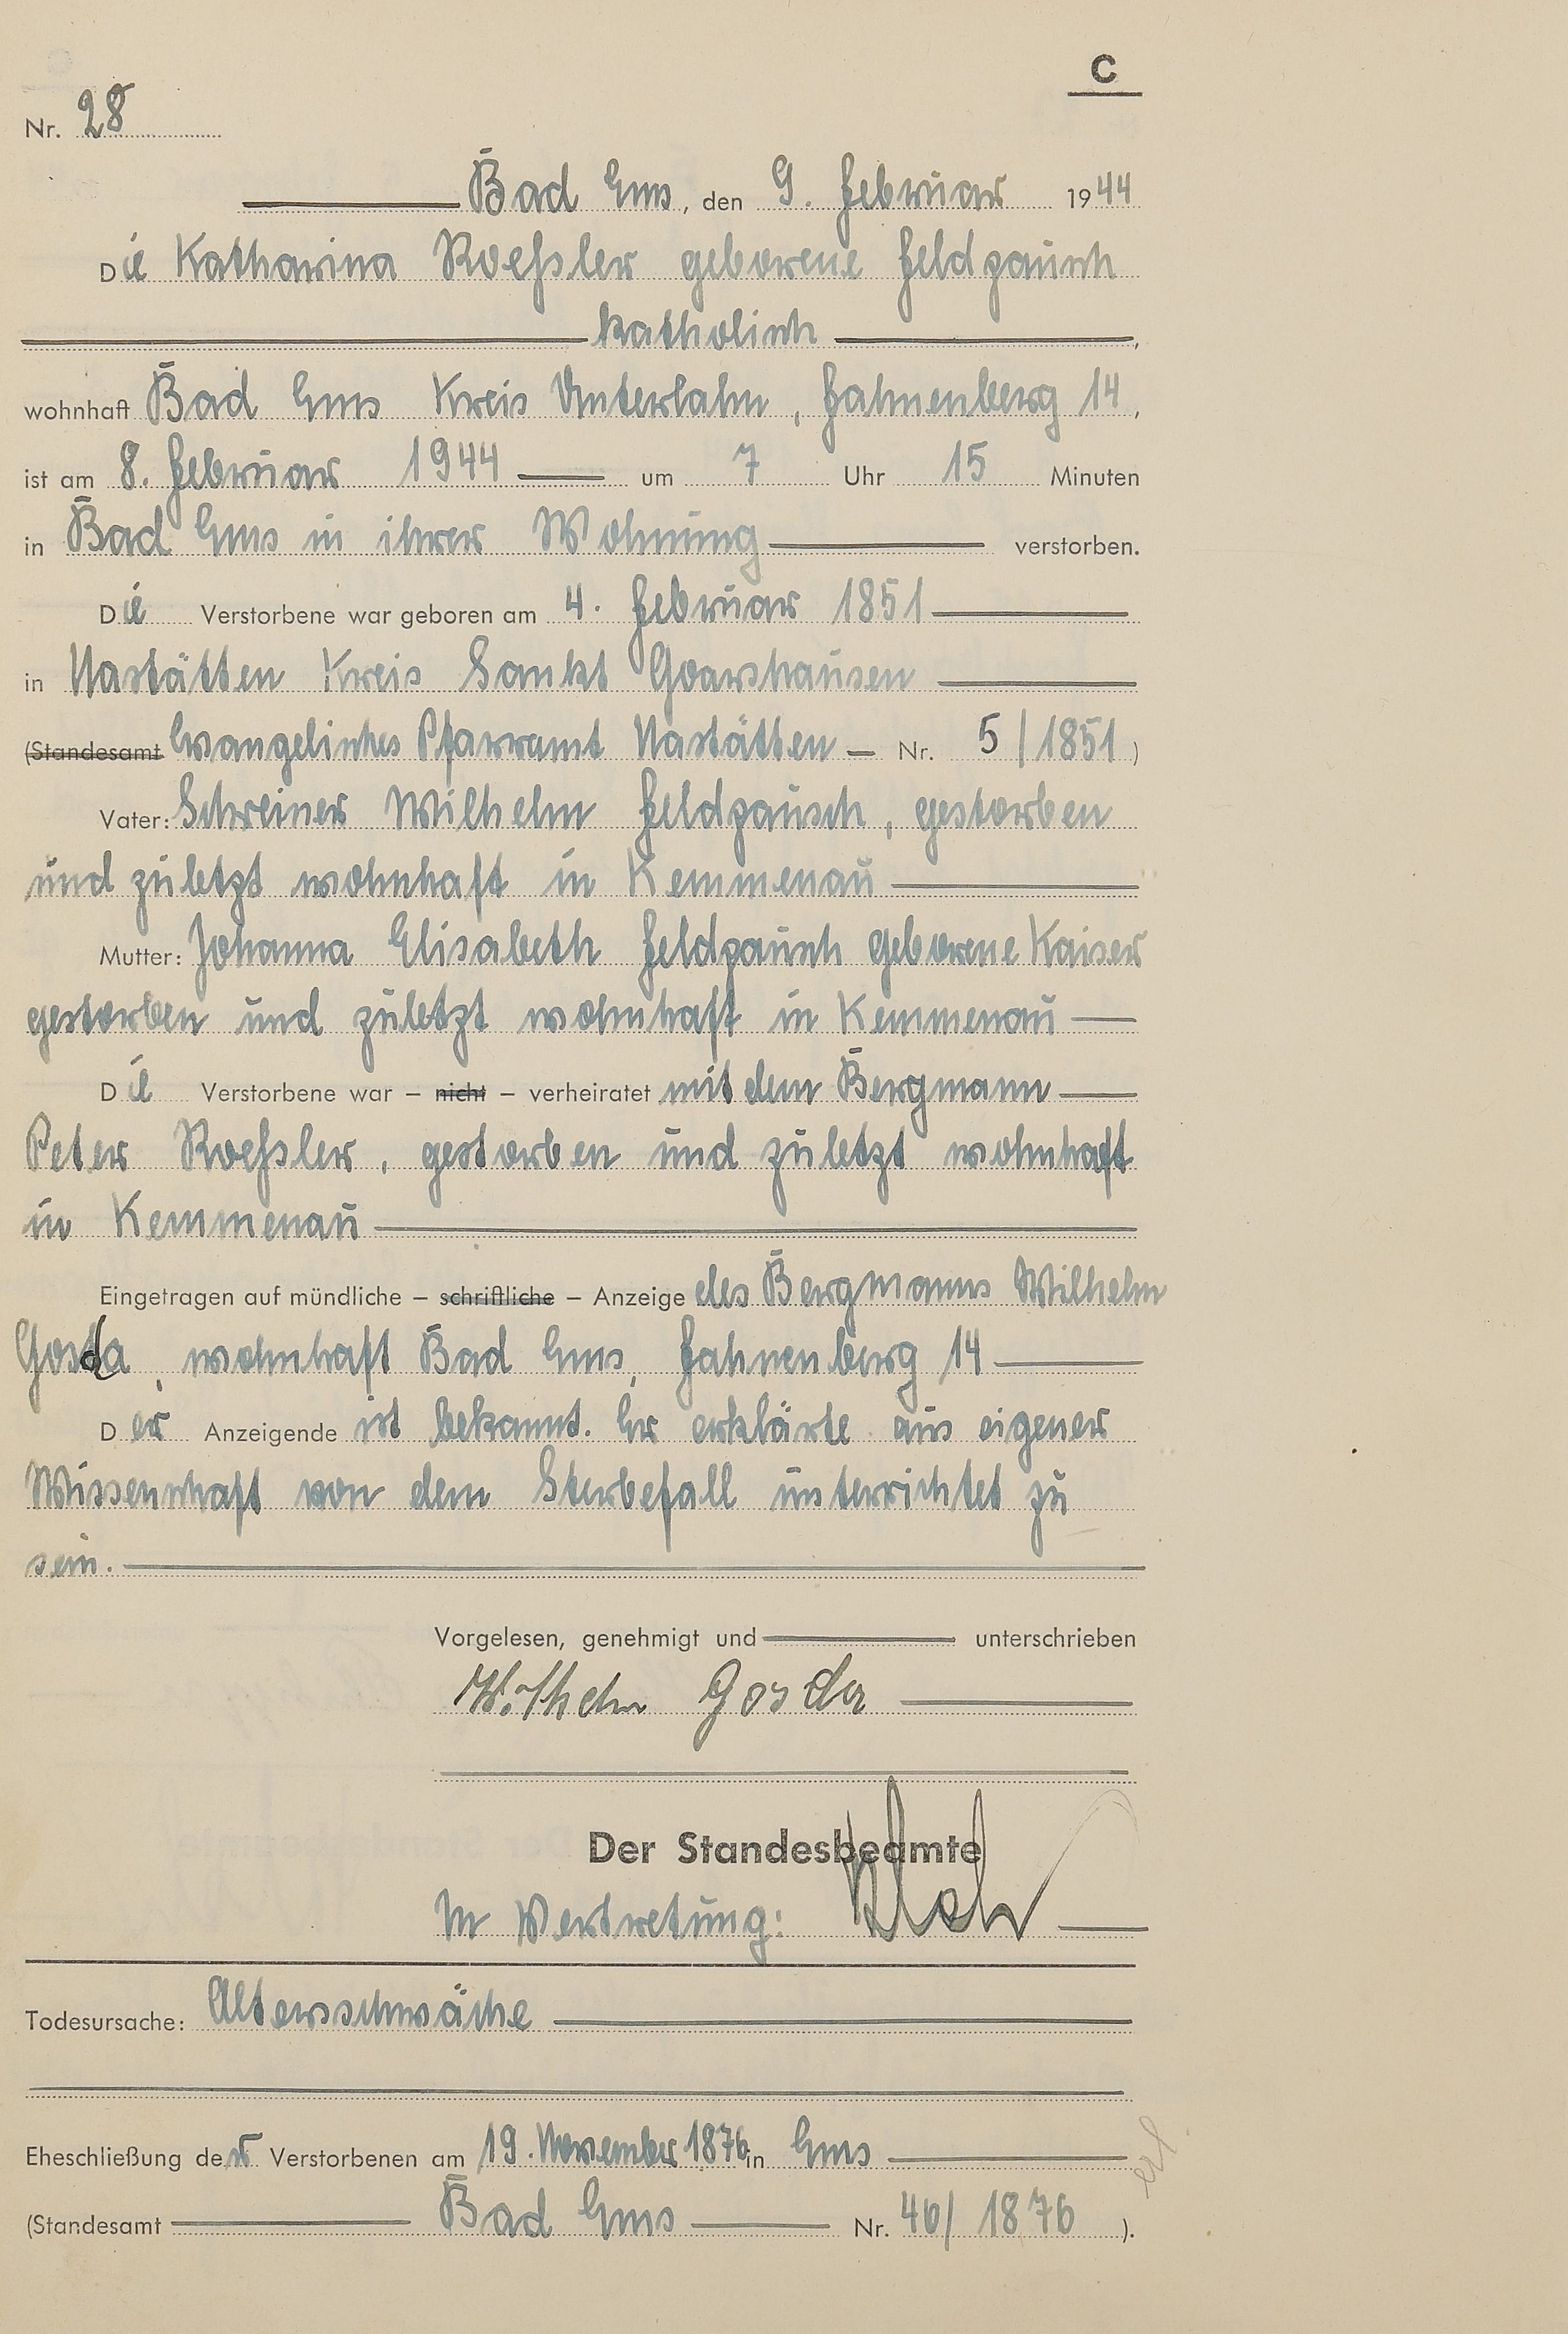 C
Nr. 28
Bad Ems, den 9. Februar 1944
Die Katharina Roeßler geborene Feldpausch
katholisch,
wohnhaft Bad Ems Kreis Unterlahn, Fahnenberg 14,
ist am 8. Februar 1944 um 7 Uhr 15 Minuten
in Bad Ems in ihrer Wohnung verstorben.
Die Verstorbene war geboren am 4. Februar 1851
in Nastätten Kreis Sankt Goarshausen
(Standesamt Evangelisches Pfarramt Nastätten – Nr. 5/1851)
Vater: Schreiner Wilhelm Feldpausch, gestorben
und zuletzt wohnhaft in Kemmenau
Mutter: Johanna Elisabeth Feldpausch geborene Kaiser
gestorben und zuletzt wohnhaft in Kemmenau
Die Verstorbene war – nicht – verheiratet mit dem Bergmann
Peter Roeßler, gestorben und zuletzt wohnhaft
in Kemmenau
Eingetragen auf mündliche – schriftliche – Anzeige des Bergmanns Wilhelm
Gosda, wohnhaft Bad Ems, Fahnenberg 14
Der Anzeigende ist bekannt. Er erklärte aus eigener
Wissenschaft von dem Sterbefall unterrichtet zu
sein.
Vorgelesen, genehmigt und unterschrieben
Wilhelm Gosda
Der Standesbeamte
In Vertretung:
Todesursache: Altersschwäche
Eheschließung der Verstorbenen am 19. November 1876 in Ems
(Standesamt Bad Ems Nr. 46/1876).